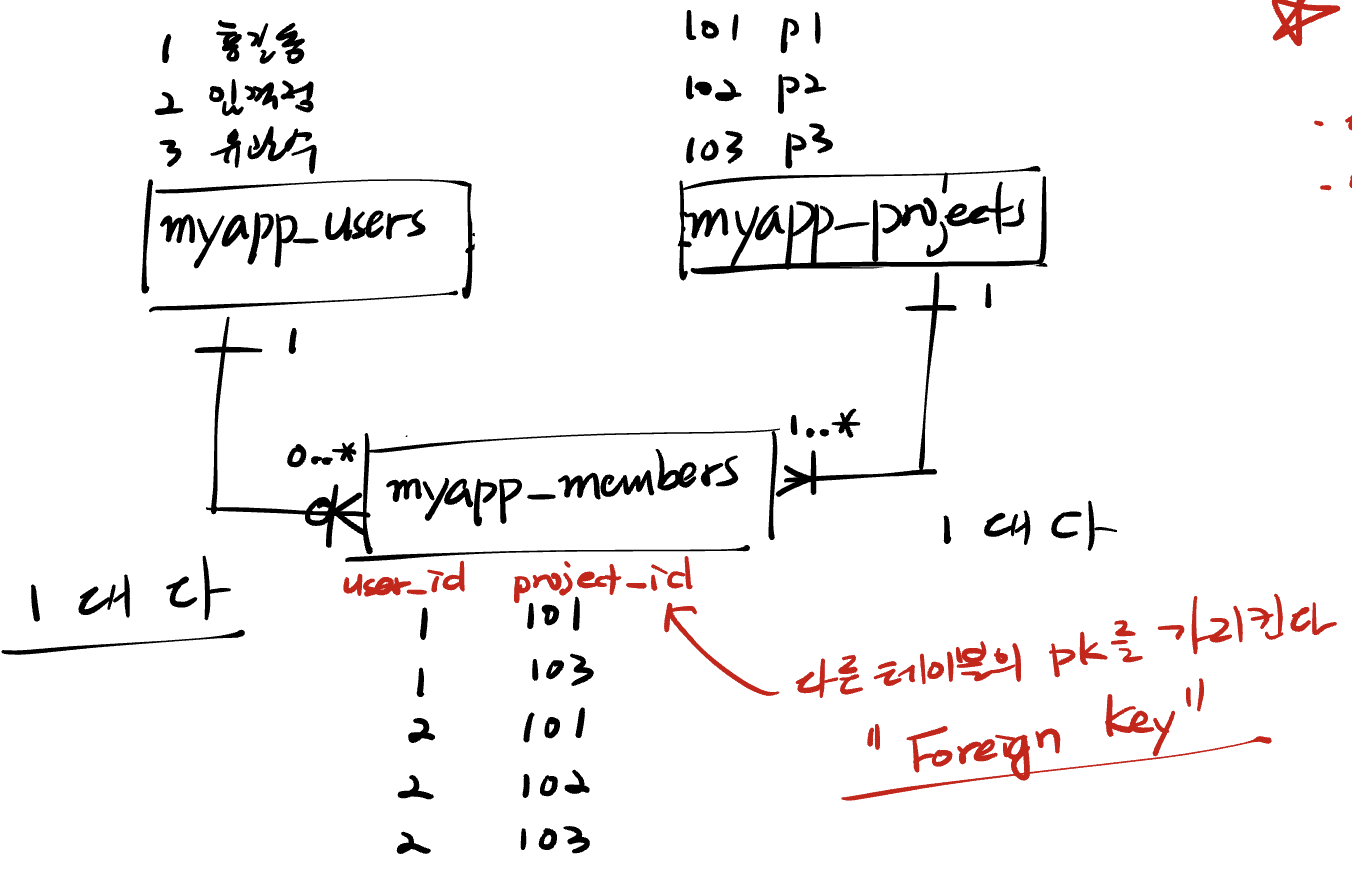 1 홍길동
2 임꺽정
3 유관순
101 p1
102 p2
103 p3
myapp_users
myapp_projects
1
1
0..*
1..*
myapp_members
1 대 다
1 대 다
user_id project_id
1 101
1 103
2 101
2 102
2 103
다른 테이블의 pk를 가리킨다
"Foreign Key"